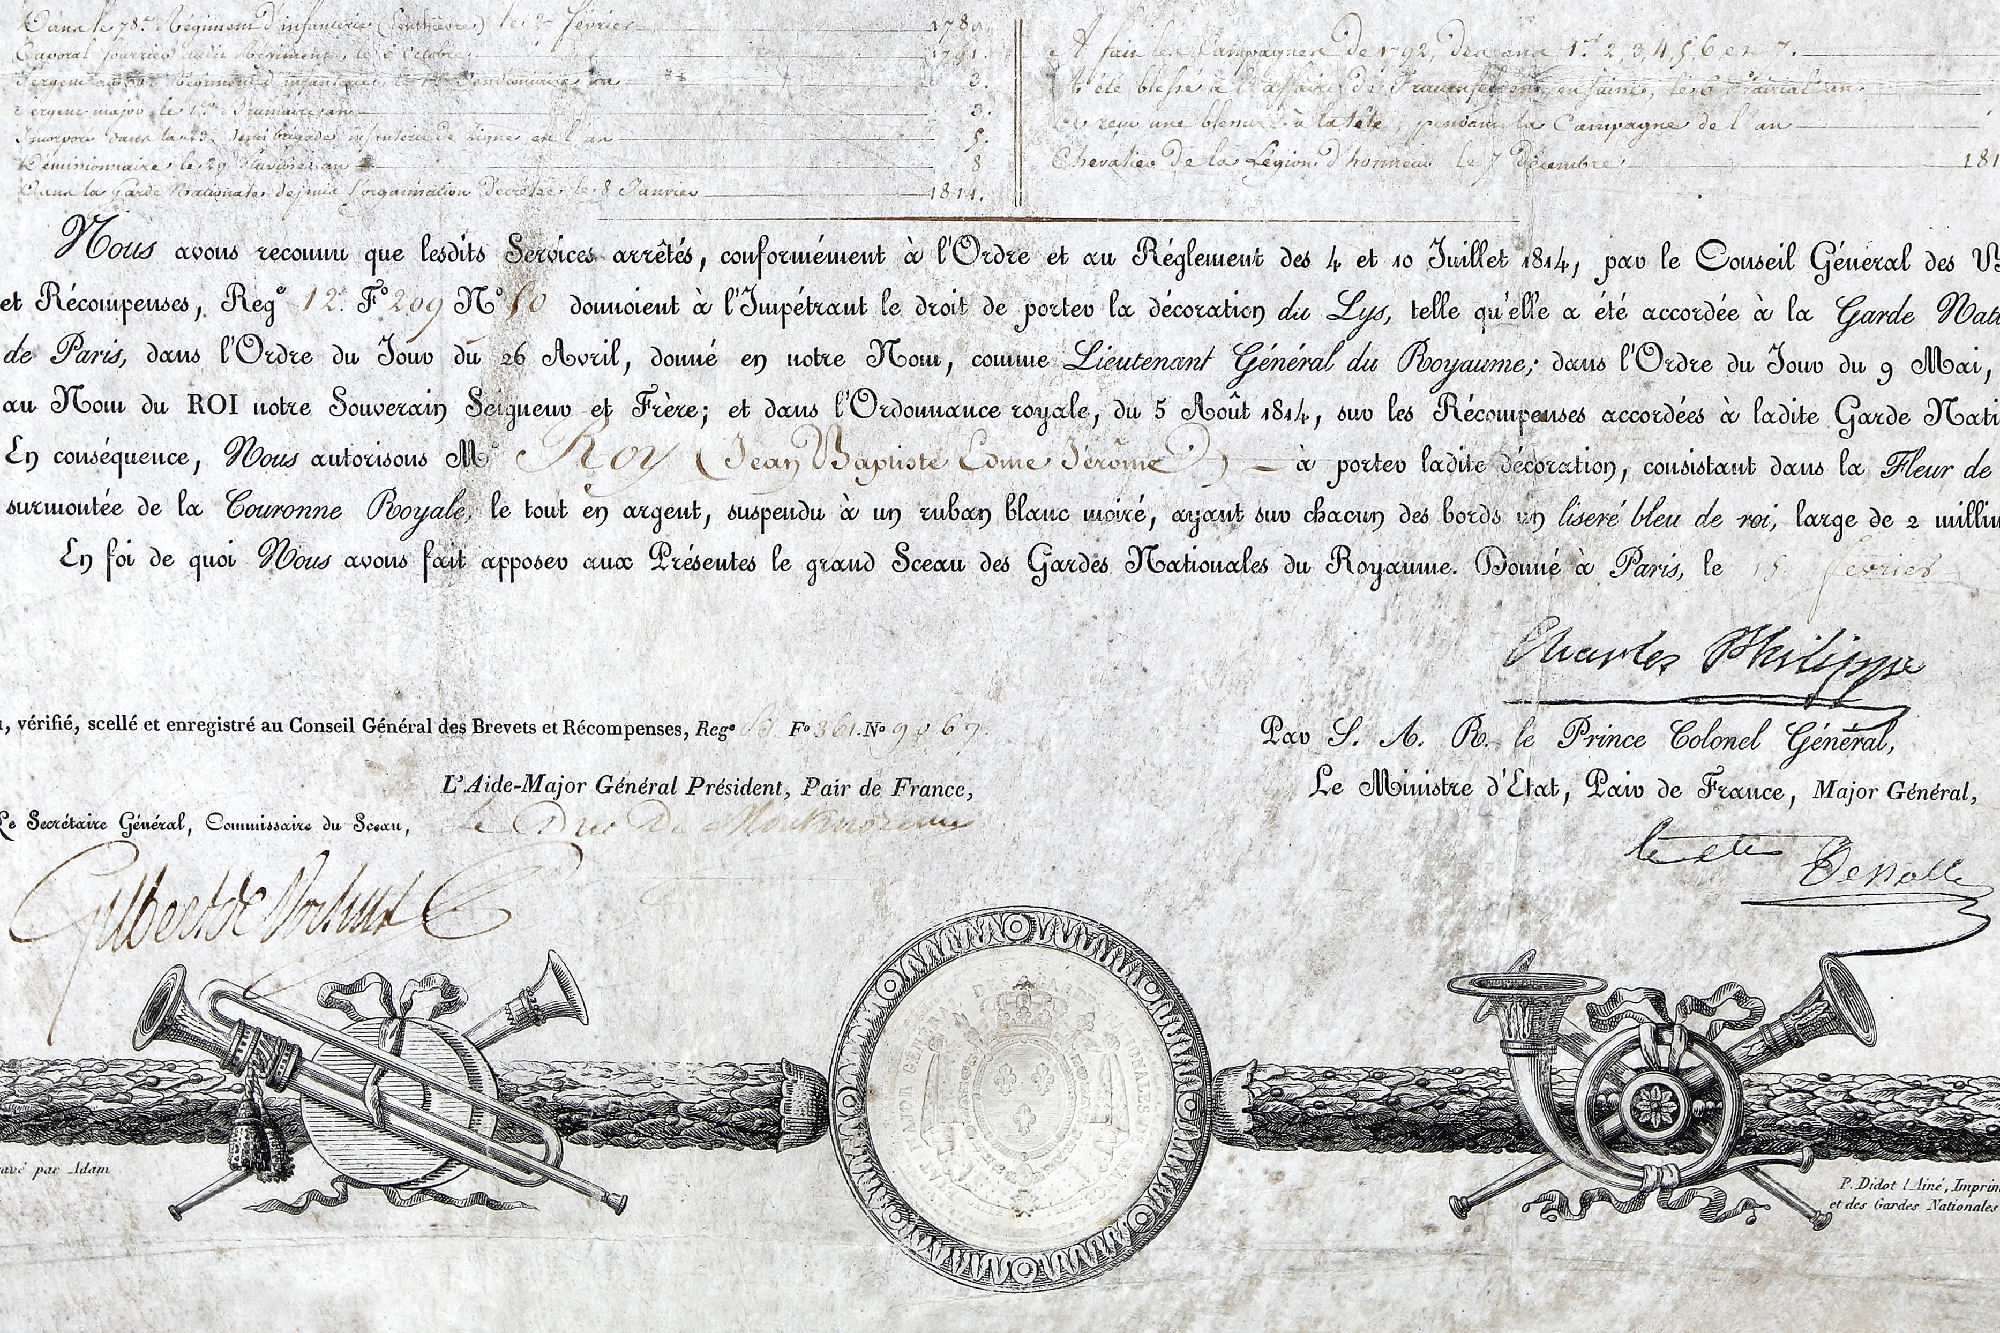 Dans le 78.e Régiment d'infanterie (Penthièvre) le 2 février 1789.
Caporal fourrier audit Régiment, le 6 Octobre 1791.
Sergent au Régiment d'infanterie, le 1er Vendémiaire an 3.
Sergent major, le 1.er Brumaire an 3.
Incorporé dans la 23.e demi brigade infanterie de Ligne, en l'an 5.
Démissionnaire le 29 an 8
Dans la Garde Nationale, depuis l'organisation Décrétée le 8 Janvier 1814.
A fait les Campagnes de 1792, des ans 1.er 2, 3, 4, 5, 6 et 7.
A été blessé à l'affaire de en Suisse, le 6 Prairial an
a reçu une blessure à la tête, pendant la Campagne de l'an
Chevalier de la Légion d'honneur le 7 décembre 181
Nous avons reconnu que lesdits Services arrêtés, conformément à l'Ordre et au Réglement des 4 et 10 Juillet 1814, par le Conseil Général des
et Récompenses, Reg.e 12. F.o 209 N.o 50 donnoient à l'Impétrant le droit de porter la décoration du Lys, telle qu'elle a été accordée à la Garde Nati
de Paris, dans l'Ordre du Jour du 26 Avril, donné en notre Nom, comme Lieutenant Général du Royaume; dans l'Ordre du Jour du 9 Mai,
au Nom du ROI notre Souverain Seigneur et Frère; et dans l'Ordonnance royale, du 5 Août 1814, sur les Récompenses accordées à ladite Garde Nati
En conséquence, Nous autorisons M.r Roy (Jean Baptiste Edme Jérôme) à porter ladite décoration, consistant dans la Fleur de
surmontée de la Couronne Royale, le tout en argent, suspendu à un ruban blanc moiré, ayant sur chacun des bords un liseré bleu de roi, large de 2 millim
En foi de quoi Nous avons fait apposer aux Présentes le grand Sceau des Gardes Nationales du Royaume. Donné à Paris, le 15 février
Charles Philippe
, vérifié, scellé et enregistré au Conseil Général des Brevets et Récompenses, Reg.e F.o 361. N.o 9067.
Par S. A. R. le Prince Colonel Général,
L'Aide-Major Général Président, Pair de France,
Le Ministre d'Etat, Pair de France, Major Général,
Le Secrétaire Général, Commissaire du Sceau,
Le Duc De Montmorency
le cte Dessolle
Gilbert de Voisins
avé par Adam
P. Didot l'Ainé, Imprim
et des Gardes Nationales